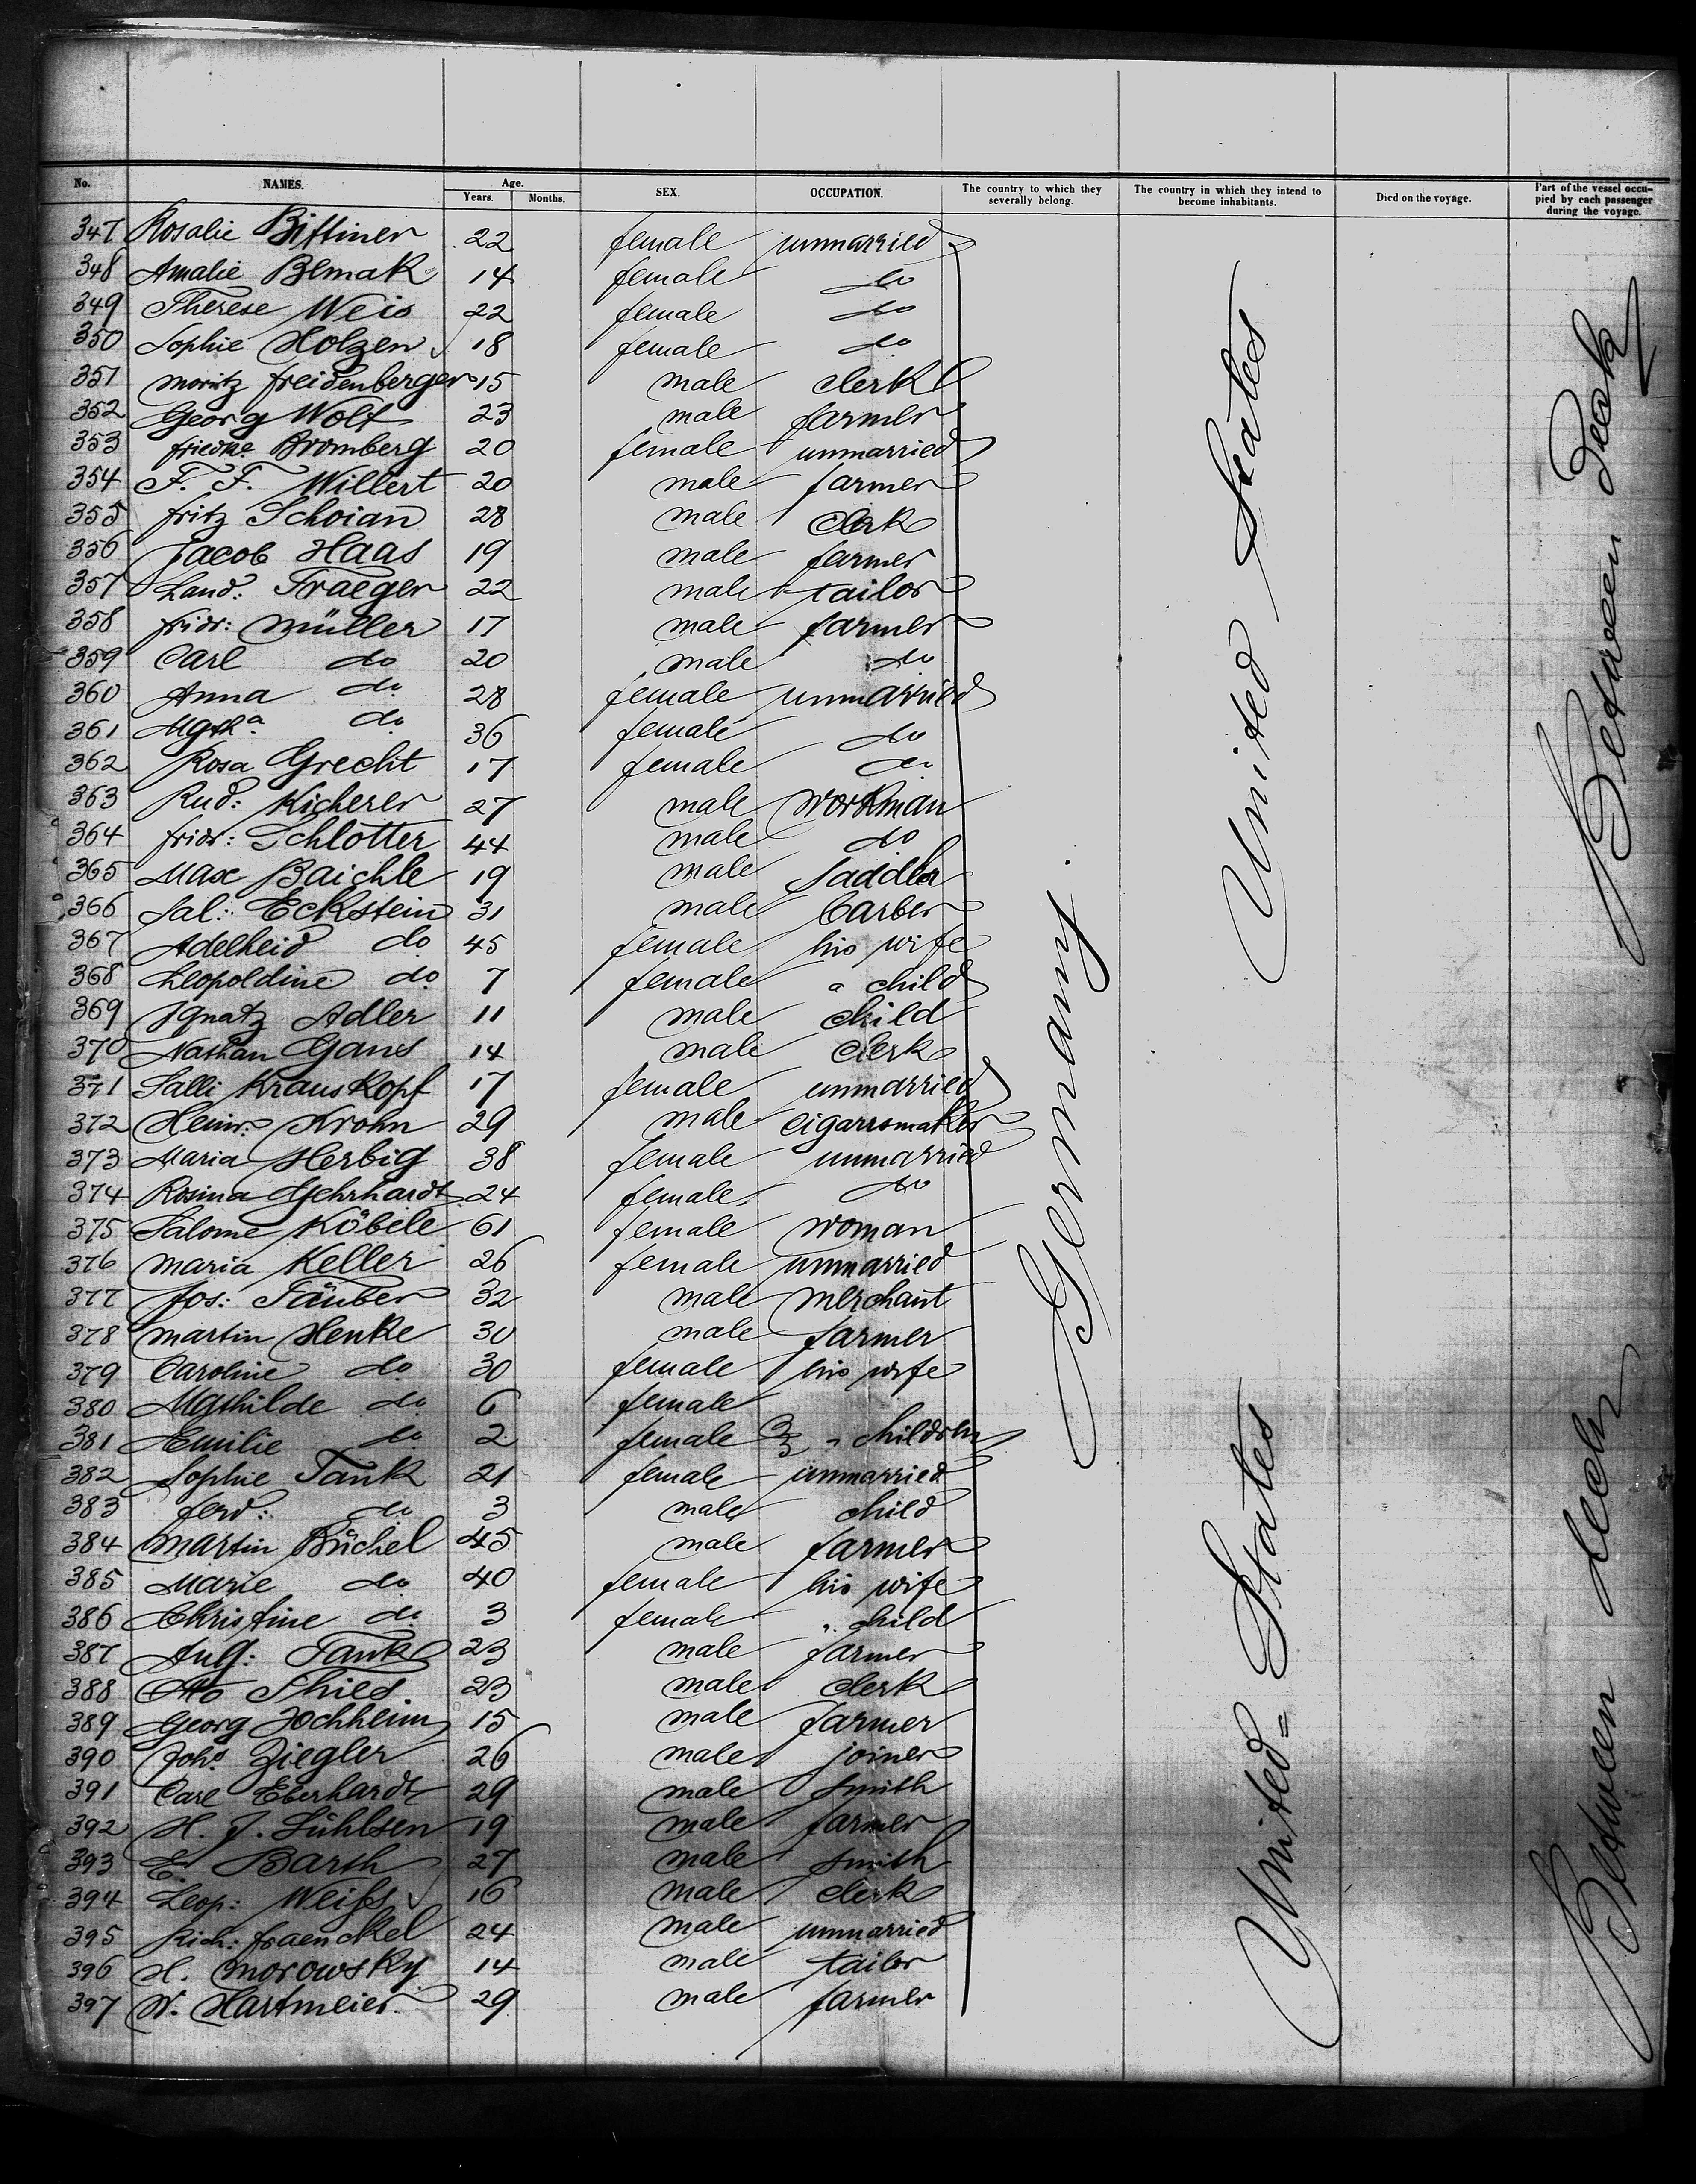 No. NAMES. Age. Years. Months. SEX. OCCUPATION. The country to which they severally belong. The country in which they intend to become inhabitants. Died on the voyage. Part of the vessel occupied by each passenger during the voyage.
347 Rosalie Bittiner 22 female unmarried
348 Amalie Blmak 14 female do
349 Therese Weis 22 female do
350 Sophie Holzen 18 female do
351 Moritz Freidenberger 15 male clerk
352 Georg Wolf 23 male farmer
353 Friedke Bromberg 20 female unmarried
354 F. F. Willert 20 male farmer
355 Fritz Schoian 28 male clerk
356 Jacob Haas 19 male farmer
357 Land: Traeger 22 male tailor
358 Fridr: Müller 17 male farmer
359 Carl do 20 male do
360 Anna do 28 female unmarried
361 Mgtha do 36 female do
362 Rosa Grecht 17 female do
363 Rud: Kicherer 27 male workman
364 Fridr: Schlotter 44 male do
365 Max Baichle 19 male saddler
366 Sal: Eckstein 31 male barber
367 Adelheid do 45 female his wife
368 Leopoldine do 7 female " child
369 Ignatz Adler 11 male child
370 Nathan Gans 14 male clerk
371 Salli Krauskopf 17 female unmarried
372 Heinr. Krohn 29 male cigarrsmaker
373 Maria Herbig 38 female unmarried
374 Rosina Gehrhardt 24 female do
375 Salome Köbele 61 female woman
376 Maria Keller 26 female unmarried
377 Jos: Täuber 32 male merchant
378 Martin Henke 30 male farmer
379 Caroline do 30 female his wife
380 Mathilde do 6 female
381 Emilie do 2 female " children
382 Sophie Tank 21 female unmarried
383 Ferd: do 3 male child
384 Martin Büchel 45 male farmer
385 Marie do 40 female his wife
386 Christine do 3 female " child
387 Aug: Tank 23 male farmer
388 Otto Thies. 23 male clerk
389 Georg Jochheim 15 male farmer
390 Johs Ziegler 26 male joiner
391 Carl Eberhardt 29 male smith
392 H. J. Lühlsen 19 male farmer
393 E. Barth 27 male smith
394 Leop: Weiss 16 male clerk
395 Rich: Fraenckel 24 male unmarried
396 H. Morowsky 14 male tailor
397 W. Hartmeier 29 male farmer
Germany.
United States
United=States
Between Deck
Between deck